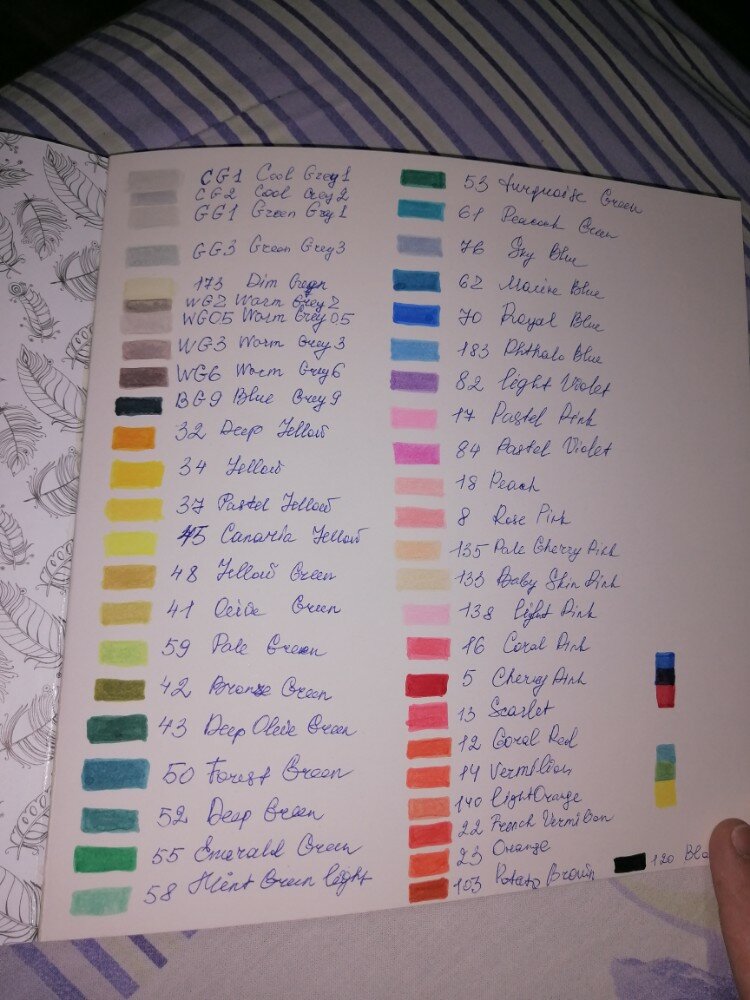 CG1 Cool Grey1
CG2 Cool Grey2
GG1 Green Grey1
GG3 Green Grey3
173 Dim Green
WG2 Warm Grey2
WG05 Warm Grey05
WG3 Warm Grey3
WG6 Warm Grey6
BG9 Blue Grey9
32 Deep Yellow
34 Yellow
37 Pastel Yellow
45 Canaria Yellow
48 Yellow Green
41 Olive Green
59 Pale Green
42 Bronze Green
43 Deep Olive Green
50 Forest Green
52 Deep Green
55 Emerald Green
58 Mint Green light
53 turquoise Green
61 Peacock Green
76 Sky Blue
62 Marine Blue
70 Royal Blue
183 Phthalo Blue
82 light Violet
17 Pastel Pink
84 Pastel Violet
18 Peach
8 Rose Pink
135 Pale Cherry Pink
133 Baby Skin Pink
138 light Pink
16 Coral Pink
5 Cherry Pink
13 Scarlet
12 Coral Red
14 Vermilion
140 light Orange
22 French Vermilion
23 Orange
103 Potato Brown
120 Bla